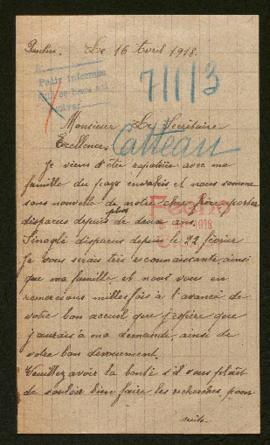 Le 16 Avril 1918.
7/1/13
Monsieur Le Secrétaire
Excellence
Catteau
Je viens d'être rapatriée avec ma
famille du pays envahis et nous somme
sans nouvelle de notre cher frère porter
disparus depuis plus de deux ans.
disparus depuis le 22 février
Je vous serais très reconnaissante ainsi
que ma famille et nous vous en
remercions milles fois à l'avance de
votre bon accueil que j'espère que
j'aurais à ma demande, ainsi de
votre bon dévouement.
Veuillez avoir la bonté s'il vous plaît
de vouloir bien faire les recherches, pour
suite.